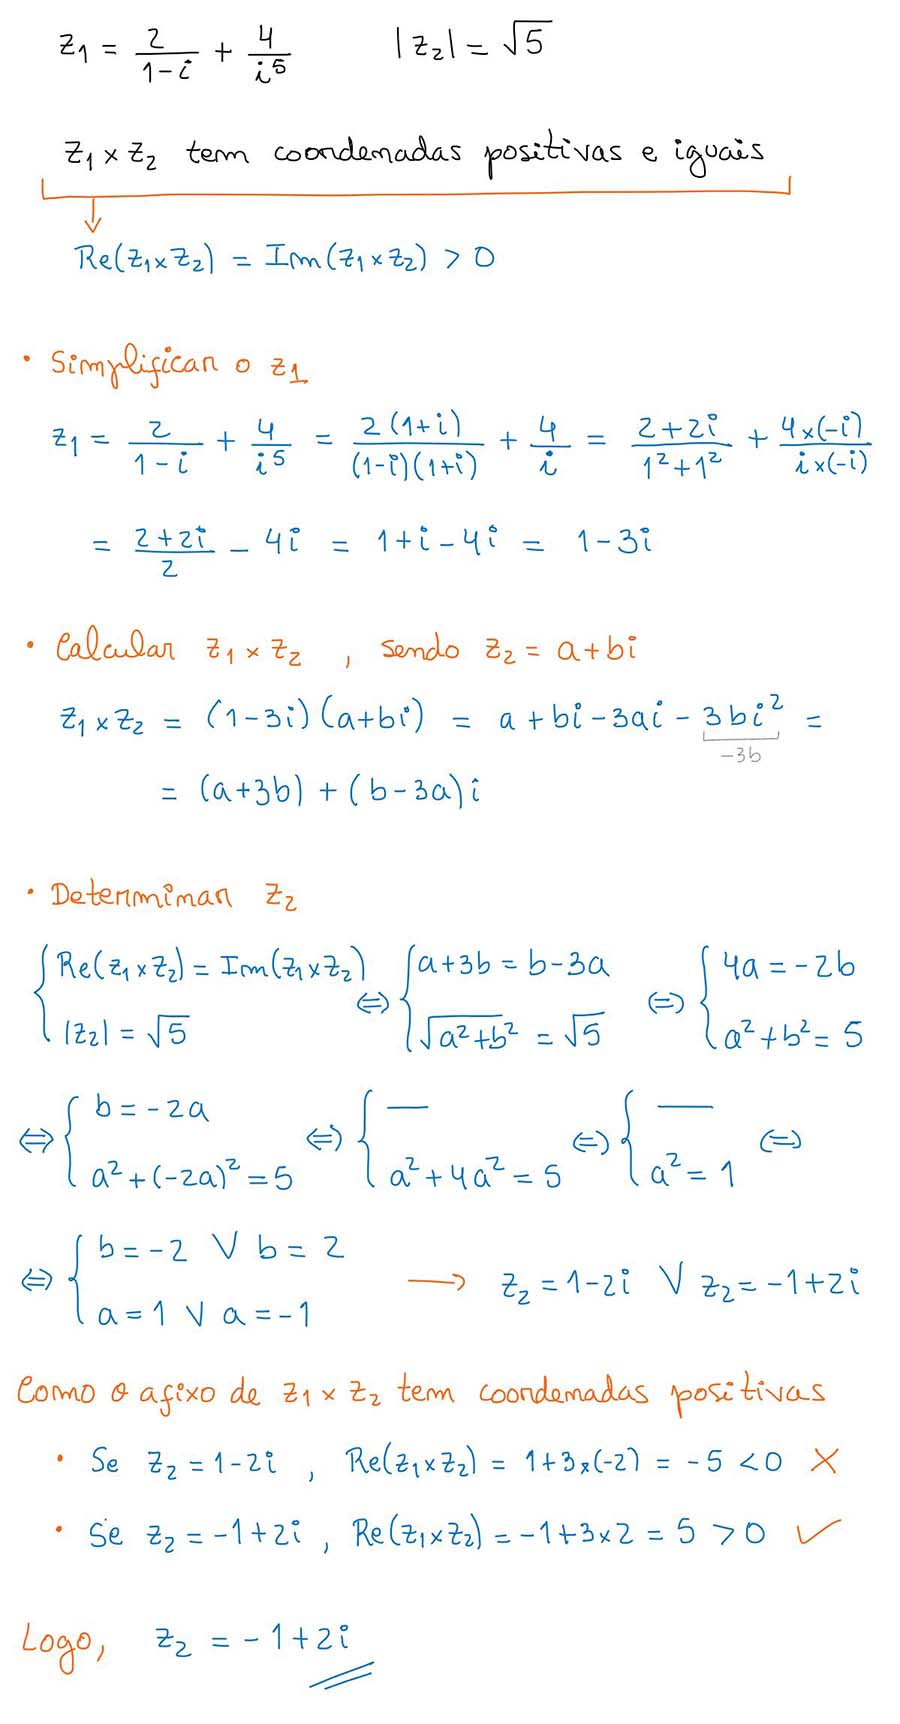 z₁ = 2/(1-i) + 4/i⁵    |z₂| = √5
z₁ × z₂ tem coordenadas positivas e iguais
Re(z₁×z₂) = Im(z₁×z₂) > 0
• Simplificar o z₁
z₁ = 2/(1-i) + 4/i⁵ = 2(1+i)/((1-i)(1+i)) + 4/i = (2+2i)/(1²+1²) + (4×(-i))/(i×(-i))
= (2+2i)/2 - 4i = 1+i-4i = 1-3i
• Calcular z₁ × z₂ , sendo z₂ = a+bi
z₁ × z₂ = (1-3i)(a+bi) = a+bi-3ai-3bi² =
-3b
= (a+3b) + (b-3a)i
• Determinar z₂
{ Re(z₁×z₂) = Im(z₁×z₂) ⇔ { a+3b = b-3a ⇔ { 4a = -2b
|z₂| = √5    √(a²+b²) = √5    a²+b² = 5
⇔ { b = -2a ⇔ { — ⇔ { — ⇔
a²+(-2a)² = 5    a²+4a² = 5    a² = 1
⇔ { b = -2 ∨ b = 2
a = 1 ∨ a = -1 → z₂ = 1-2i ∨ z₂ = -1+2i
Como o afixo de z₁ × z₂ tem coordenadas positivas
• Se z₂ = 1-2i , Re(z₁×z₂) = 1+3×(-2) = -5 < 0 ✗
• Se z₂ = -1+2i , Re(z₁×z₂) = -1+3×2 = 5 > 0 ✓
Logo, z₂ = -1+2i